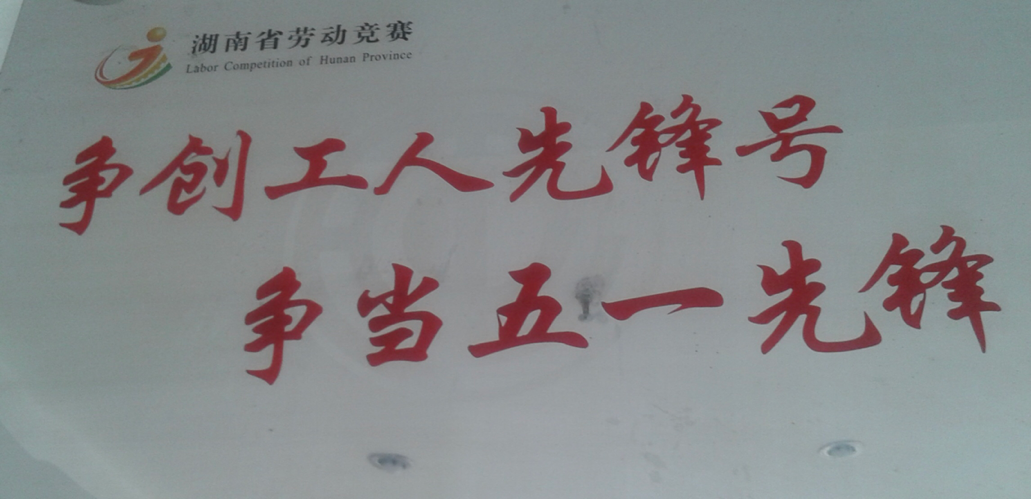 湖南省劳动竞赛
Labor Competition of Hunan Province
争创工人先锋号
争当五一先锋